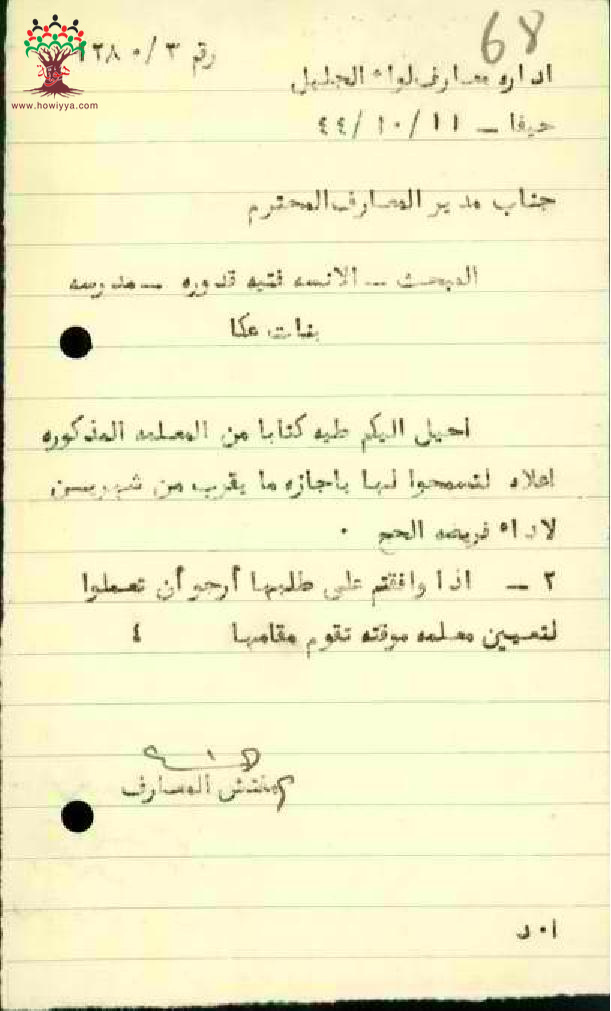 68
رقم ٣/٥/١٢٨٠
اداره معارف لواء الجليل
www.howiyya.com
حيفا ــ ١١/١٠/٤٤
جناب مدير المعارف المحترم
المبحث ــ الانسه فتيه قدوره ــ مدرسه
بنات عكا
احيل اليكم طيه كتابا من المعلمه المذكوره
اعلاه لتسمحوا لها باجازه ما يقرب من شهريسن
لاداء فريضه الحج ٠
٢ ــ اذا وافقتم على طلبها أرجو أن تعملوا
لتعيين معلمه موقته تقوم مقامها ٤
مفتش المعارف
ا٠د